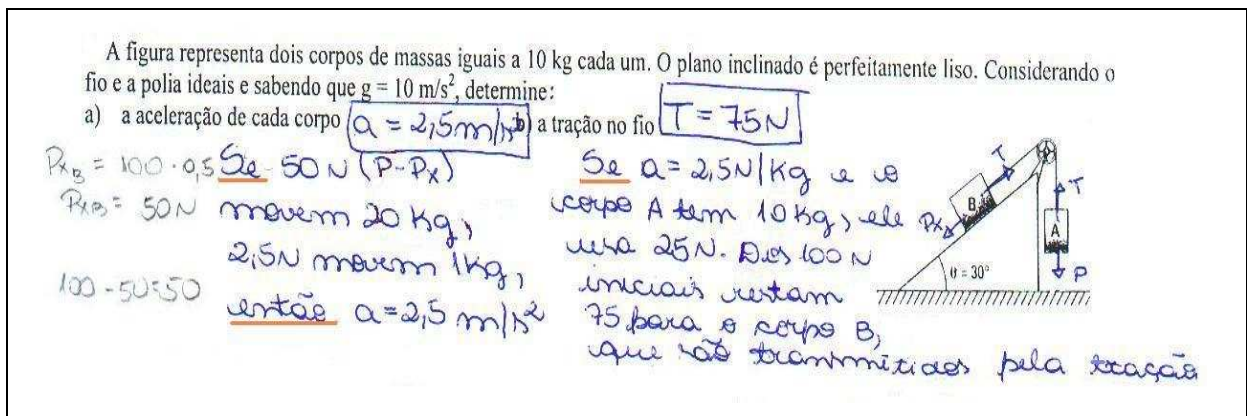 A figura representa dois corpos de massas iguais a 10 kg cada um. O plano inclinado é perfeitamente liso. Considerando o
fio e a polia ideais e sabendo que g = 10 m/s², determine:
a) a aceleração de cada corpo a = 2,5 m/s² b) a tração no fio T = 75N
PxB = 100 · 0,5
PxB = 50N
100 - 50 = 50
Se 50 N (P-Px)
movem 20 kg,
2,5N movem 1kg,
então a=2,5 m/s²
Se a = 2,5N/Kg e o
corpo A tem 10kg, ele
usa 25N. Dos 100 N
iniciais restam
75 para o corpo B,
que são transmitidos pela tração
T
B
Px
T
A
P
θ = 30°